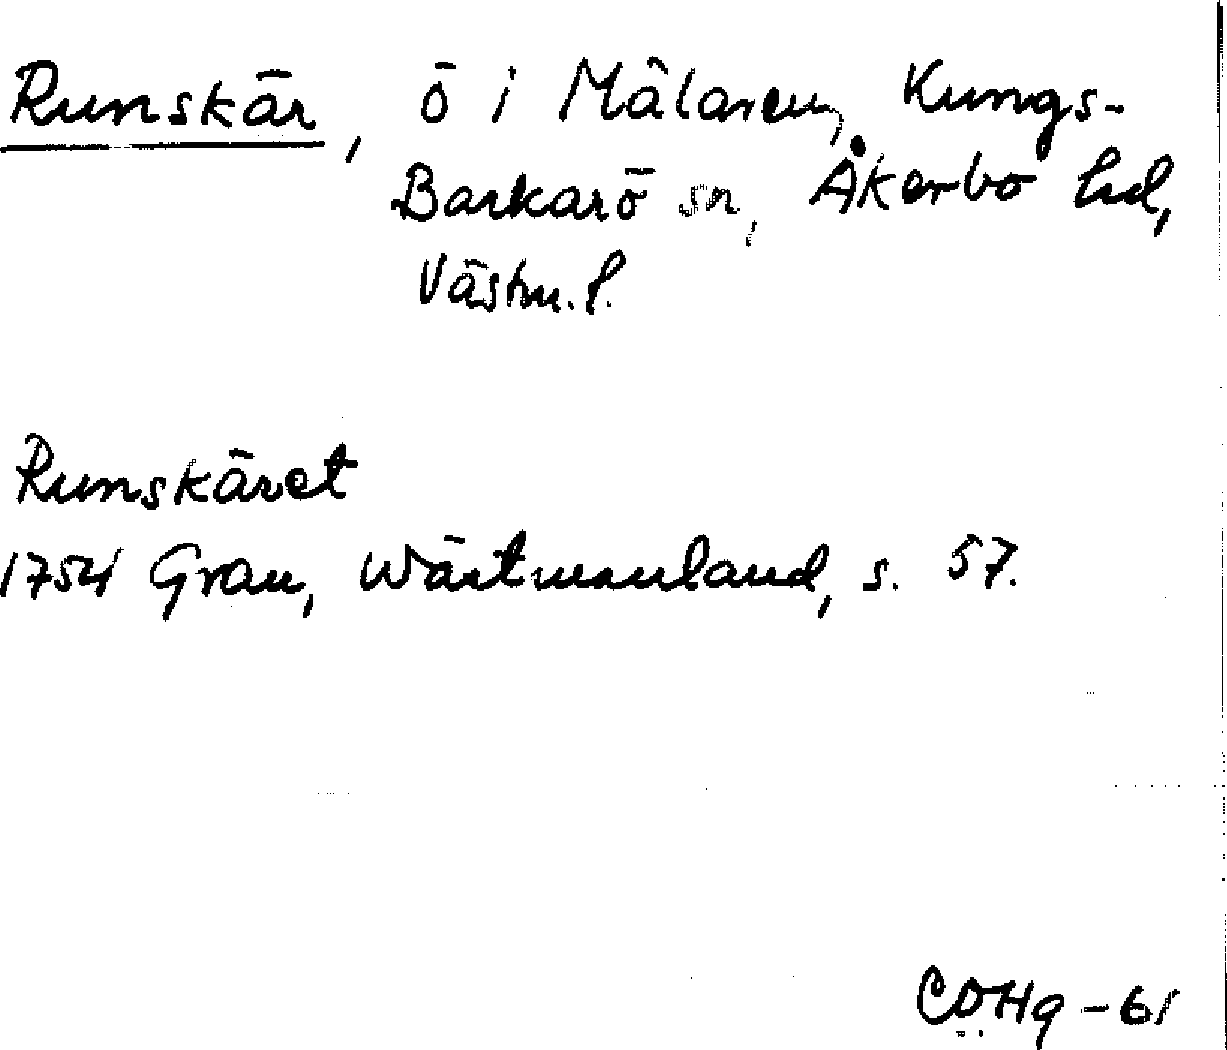 Runskär, ö i Mälaren, Kungs-
Barkarö sn, Åkerbo hd,
Västm. l.
Runskäret
1754 Grau, Wästmanland, s. 57.
COHg -61